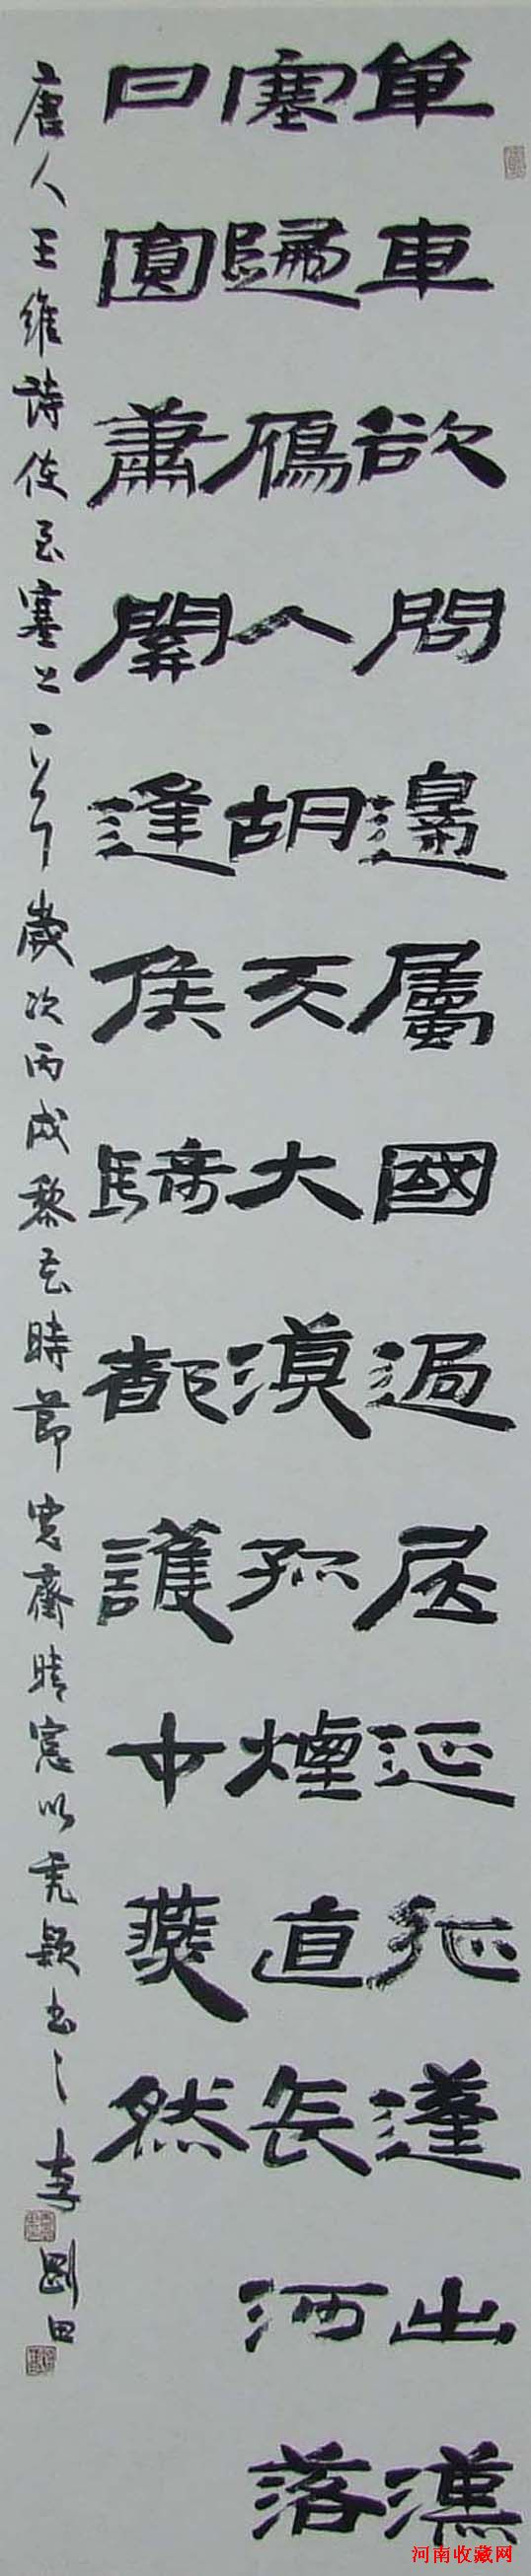 單車欲問邊屬國過居延征蓬出漢
塞歸鴈入胡天大漠孤煙直長河落
日圓蕭關逢侯騎都護在燕然
唐人王維詩使至塞上一首歲次丙戌時節寬齋晴窗以禿穎書之李剛田
河南收藏网